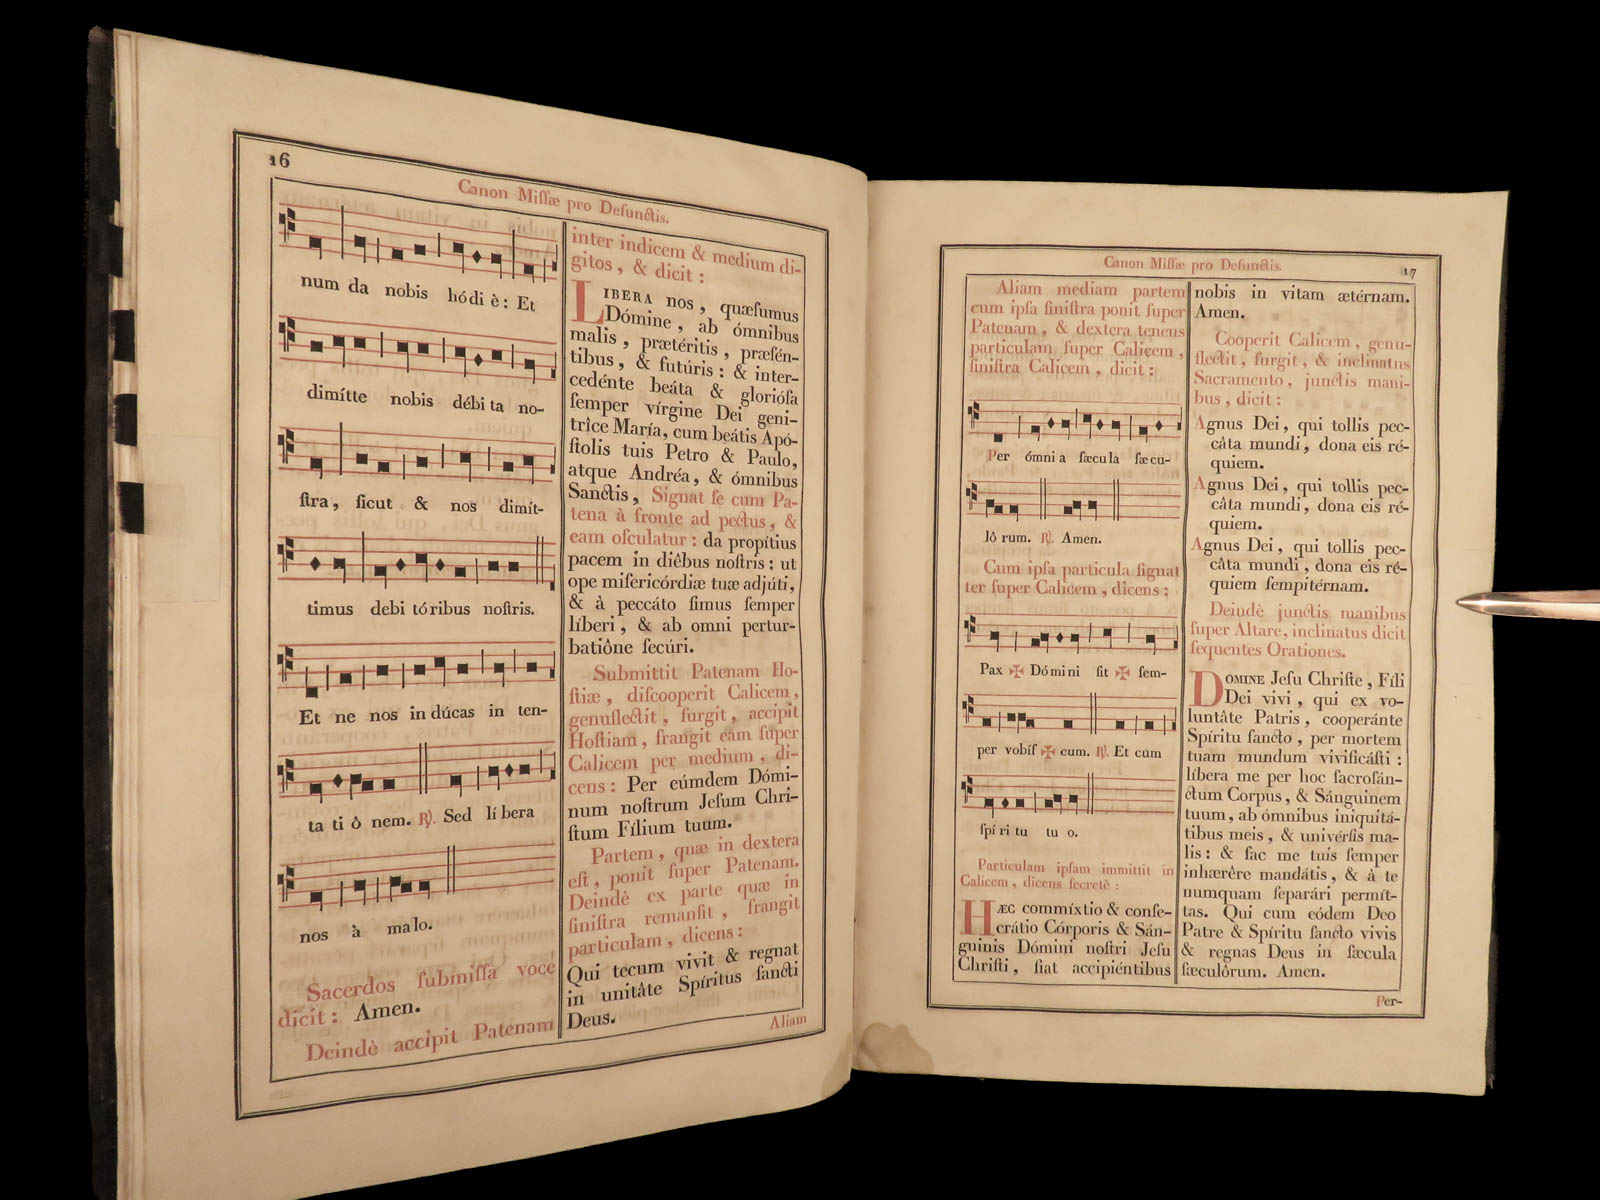 16
Canon Miſſæ pro Defunctis.
num da nobis hódi è : Et
dimítte nobis débi ta no-
ſtra, ſicut & nos dimít-
timus debi tóribus noſtris.
Et ne nos in dúcas in ten-
ta ti ô nem. ℟. Sed lí bera
nos à ma lo.
Sacerdos ſubmiſſa voce
dicit : Amen.
Deindè accipit Patenam
inter indicem & medium di-
gitos, & dicit :
LIBERA nos, quæſumus
Dómine, ab ómnibus
malis, prætéritis, præſén-
tibus, & futúris : & inter-
cedénte beáta & glorióſa
ſemper vírgine Dei geni-
trìce María, cum beátis Apó-
ſtolis tuis Petro & Paulo,
atque Andréa, & ómnibus
Sanctis, Signat ſe cum Pa-
tena à fronte ad pectus, &
eam oſculatur : da propítius
pacem in diêbus noſtris : ut
ope miſericórdiæ tuæ adjúti,
& à peccáto ſimus ſemper
líberi, & ab omni pertur-
batiône ſecúri.
Submittit Patenam Ho-
ſtiæ, diſcooperit Calicem,
genuflectit, ſurgit, accipit
Hoſtiam, frangit eam ſuper
Calicem per medium, di-
cens : Per eúmdem Dómi-
num noſtrum Jeſum Chri-
ſtum Fílium tuum.
Partem, quæ in dextera
eſt, ponit ſuper Patenam.
Deindè ex parte quæ in
ſiniſtra remanſit, frangit
particulam, dicens :
Qui tecum vivit & regnat
in unitâte Spíritus ſancti
Deus.
Aliam
Canon Miſſæ pro Defunctis.
17
Aliam mediam partem
cum ipſa ſiniſtra ponit ſuper
Patenam, & dextera tenens
particulam ſuper Calicem,
ſiniſtra Calicem, dicit :
Per ómni a ſæcu la ſæ cu-
lô rum. ℟. Amen.
Cum ipſa particula ſignat
ter ſuper Calicem, dicens :
Pax ✠ Dómi ni ſit ✠ ſem-
per vobíſ ✠ cum. ℟. Et cum
ſpí ri tu tu o.
Particulam ipſam immittit in
Calicem, dicens ſecretè :
HÆC commíxtio & conſe-
crátio Córporis & Sán-
guinis Dómini noſtri Jeſu
Chriſti, fiat accipiéntibus
nobis in vitam ætérnam.
Amen.
Cooperit Calicem, genu-
flectit, ſurgit, & inclinatus
Sacramento, junctis mani-
bus, dicit :
Agnus Dei, qui tollis pec-
câta mundi, dona eis ré-
quiem.
Agnus Dei, qui tollis pec-
câta mundi, dona eis ré-
quiem.
Agnus Dei, qui tollis pec-
câta mundi, dona eis ré-
quiem ſempitérnam.
Deindè junctis manibus
ſuper Altare, inclinatus dicit
ſequentes Orationes.
DOMINE Jeſu Chriſte, Fíli
Dei vivi, qui ex vo-
luntâte Patris, cooperánte
Spíritu ſancto, per mortem
tuam mundum vivificáſti :
líbera me per hoc ſacroſán-
ctum Corpus, & Sánguinem
tuum, ab ómnibus iniquitá-
tibus meis, & univérſis ma-
lis : & fac me tuis ſemper
inhærêre mandátis, & à te
numquam ſeparári permít-
tas. Qui cum eódem Deo
Patre & Spíritu ſancto vivis
& regnas Deus in ſæcula
ſæculôrum. Amen.
Per-